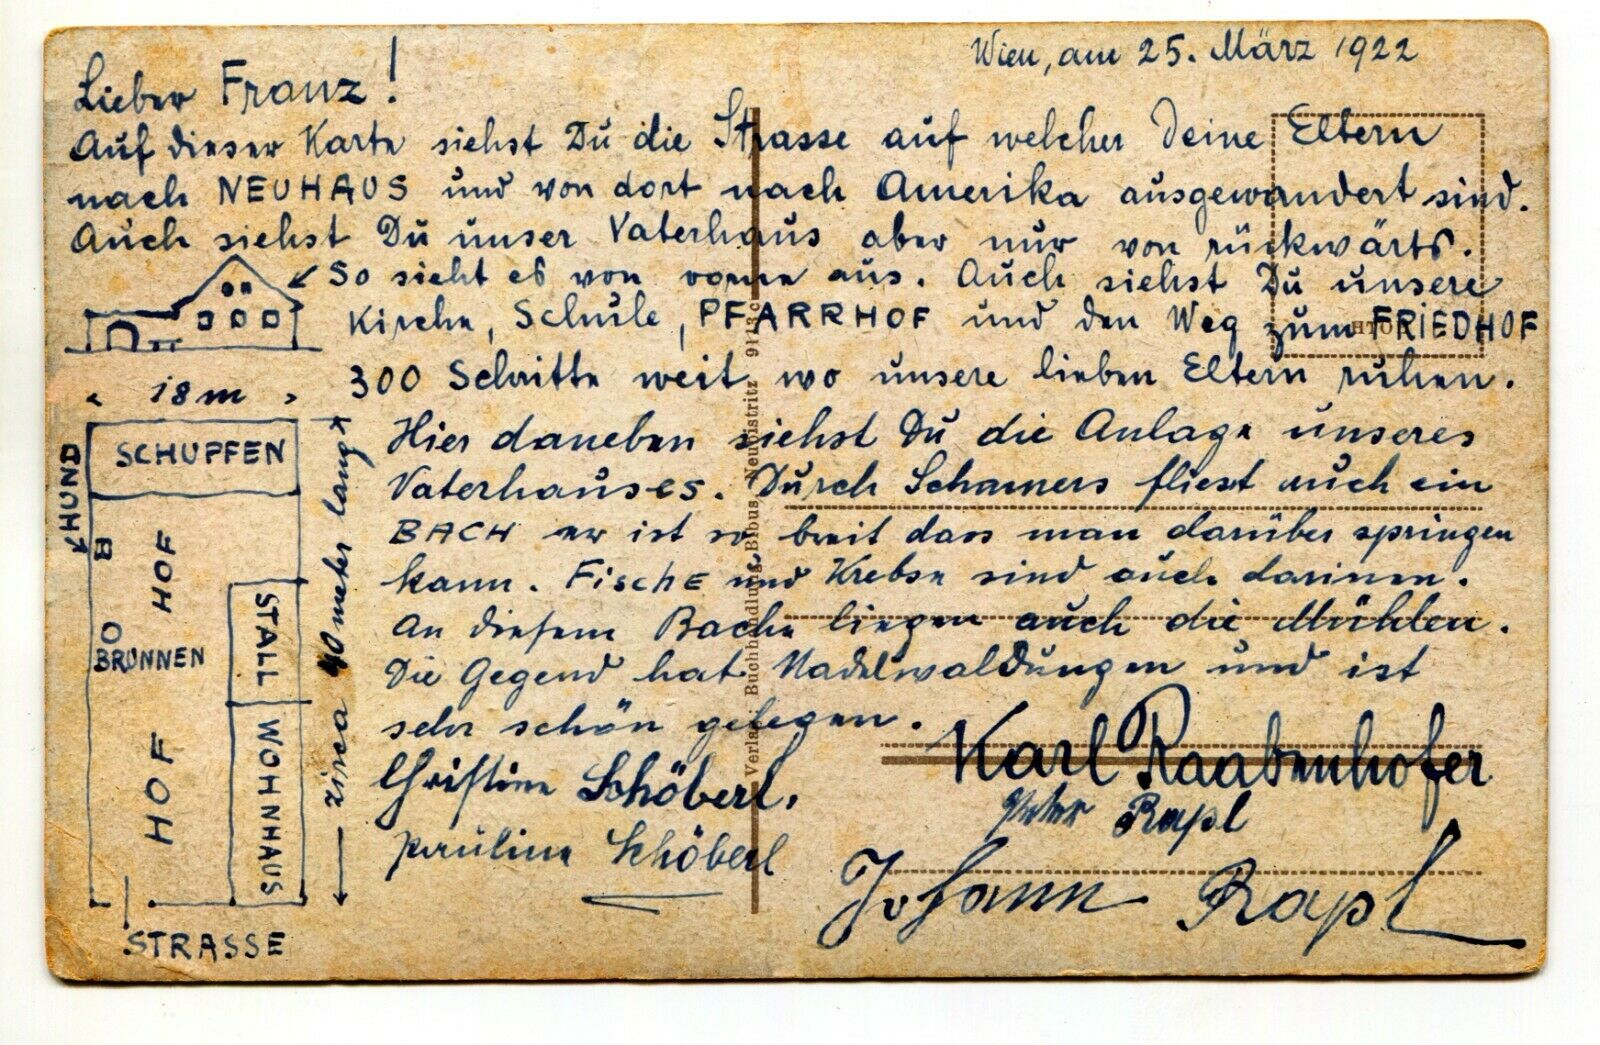 Wien, am 25. März 1922
Lieber Franz!
Auf dieser Karte siehst Du die Strasse auf welcher Deine Eltern
nach NEUHAUS und von dort nach Amerika ausgewandert sind.
Auch siehst Du unser Vaterhaus aber nur von rückwärts.
So sieht es von vorne aus. Auch siehst Du unsere
Kirche, Schule, PFARRHOF und den Weg zum FRIEDHOF
300 Schritte weit wo unsere lieben Eltern ruhen.
Hier daneben siehst Du die Anlage unseres
Vaterhauses. Durch Schamers fliest auch ein
BACH er ist so breit dass man darüber springen
kann. Fische und Krebse sind auch darinen.
An diesem Bache liegen auch die Mühlen.
Die Gegend hat Nadelwaldungen und ist
sehr schön gelegen.
Christine Schöberl,
Pauline Schöberl
Karl Raabenhofer
Peter Rapl
Johann Rapl
18 m
SCHUPFEN
HUND
HOF
STALL
BRUNNEN
HOF
WOHNHAUS
STRASSE
zirca 40 meter lang
Verlag: Buchhandlung Bibus Neubistritz 9113 c